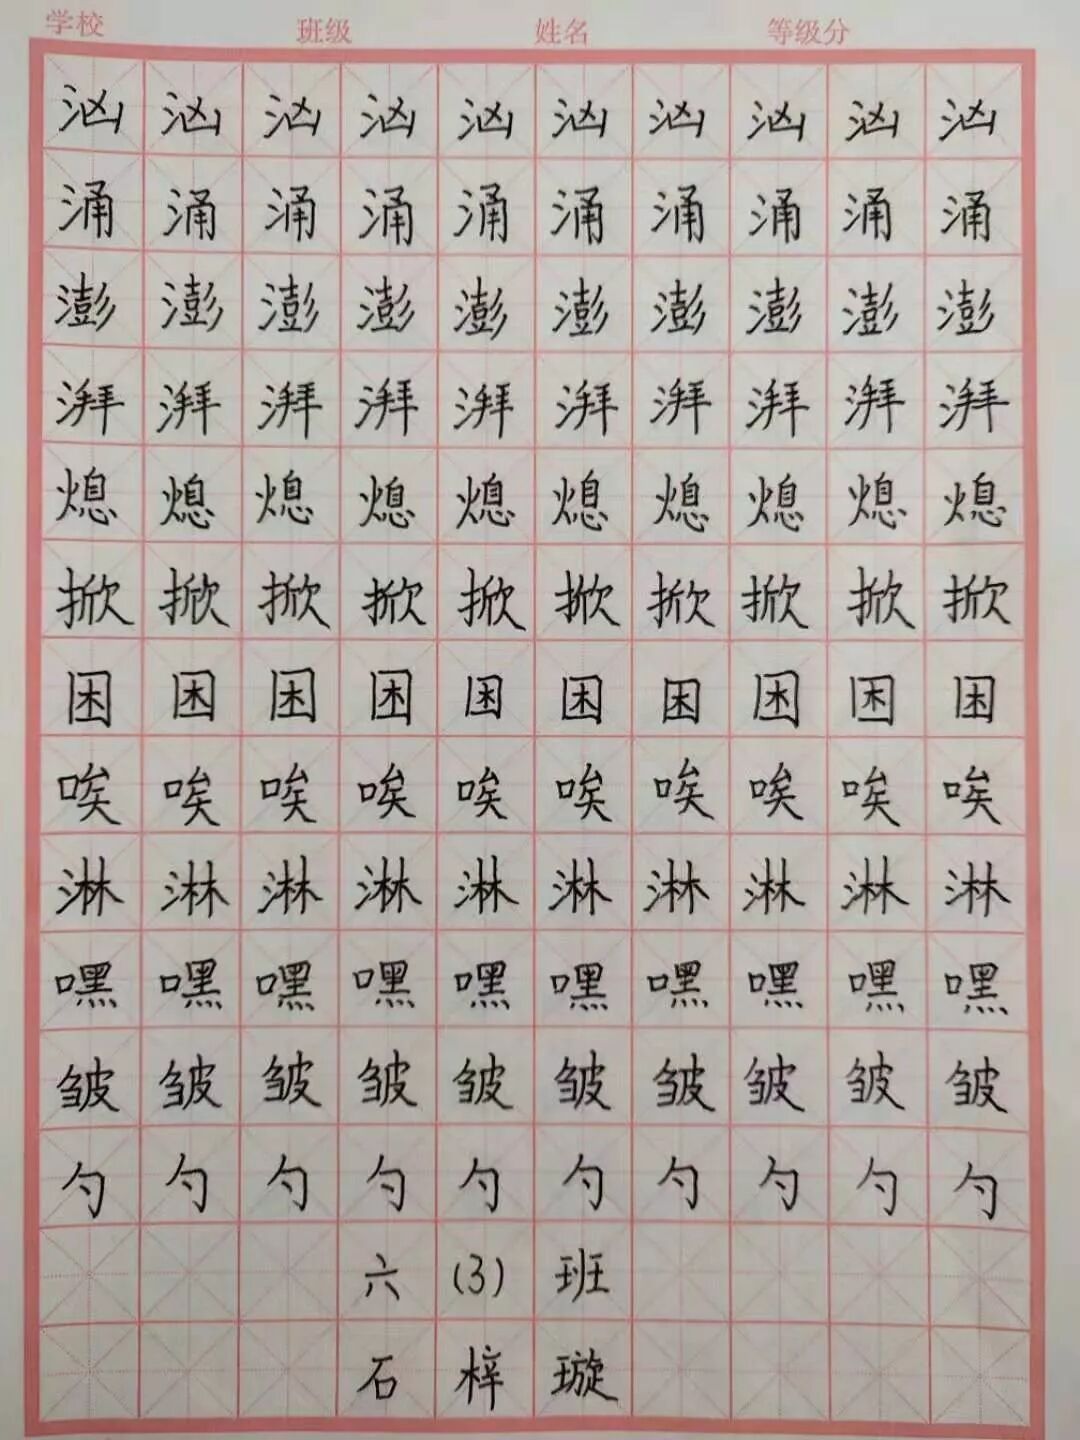 学校 班级 姓名 等级分
汹汹汹汹汹汹汹汹汹汹
涌涌涌涌涌涌涌涌涌涌
澎澎澎澎澎澎澎澎澎澎
湃湃湃湃湃湃湃湃湃湃
熄熄熄熄熄熄熄熄熄熄
掀掀掀掀掀掀掀掀掀掀
困困困困困困困困困困
唉唉唉唉唉唉唉唉唉唉
淋淋淋淋淋淋淋淋淋淋
嘿嘿嘿嘿嘿嘿嘿嘿嘿嘿
皱皱皱皱皱皱皱皱皱皱
勺勺勺勺勺勺勺勺勺勺
六(3)班
石梓璇